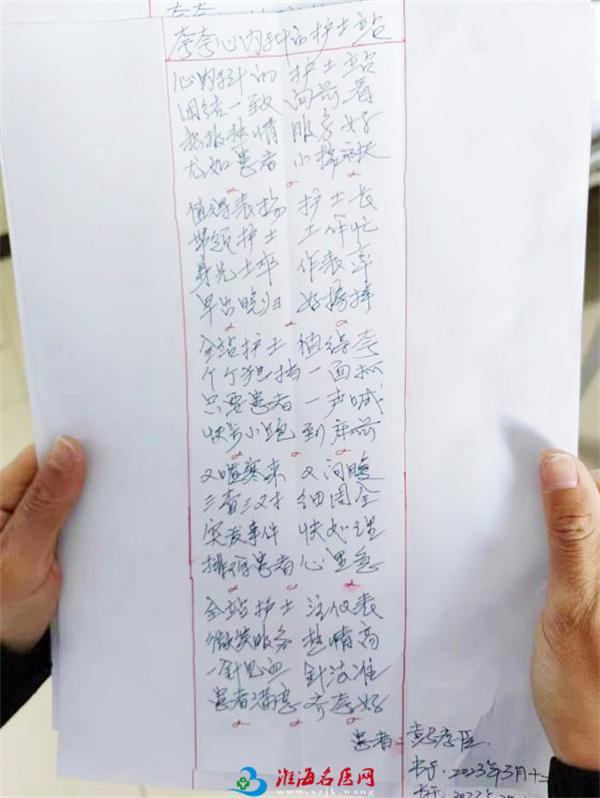 夸夸心内科的护士站
心内科的 护士站
团结一致 向前看
积极热情 服务好
尤如患者 小棉袄
值得表扬 护士长
带领护士 工作忙
身先士卒 作表率
早出晚归 好榜样
全站护士 值得夸
个个独挡一面抓
只要患者 一声喊
快步小跑 到床前
又嘘寒来 又问暖
三查三对 细周全
突发事件 快处理
排解患者心里急
全站护士 注仪表
微笑服务 热情高
一针见血 针法准
患者满意 齐夸好
患者:彭孝臣
书于:2023年3月十二
书于:2023年
淮海名医网
www.xzjk.wang